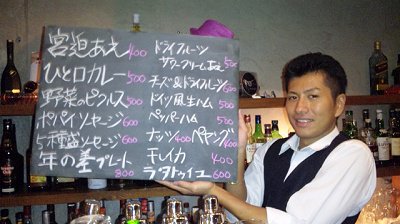 宮迫あえ 400
ひと口カレー 500
野菜のピクルス 500
ポパイソセージ 600
5種盛ソセージ 600
年の差プレート 800
ドライフルーツ
サワークリームあえ 500
チーズ&ドライフルーツ 600
ドイツ風生ハム 500
ペッパーハム 500
ナッツ 400 ペヤング 400
チレイカ 400
ラタトゥイユ 600